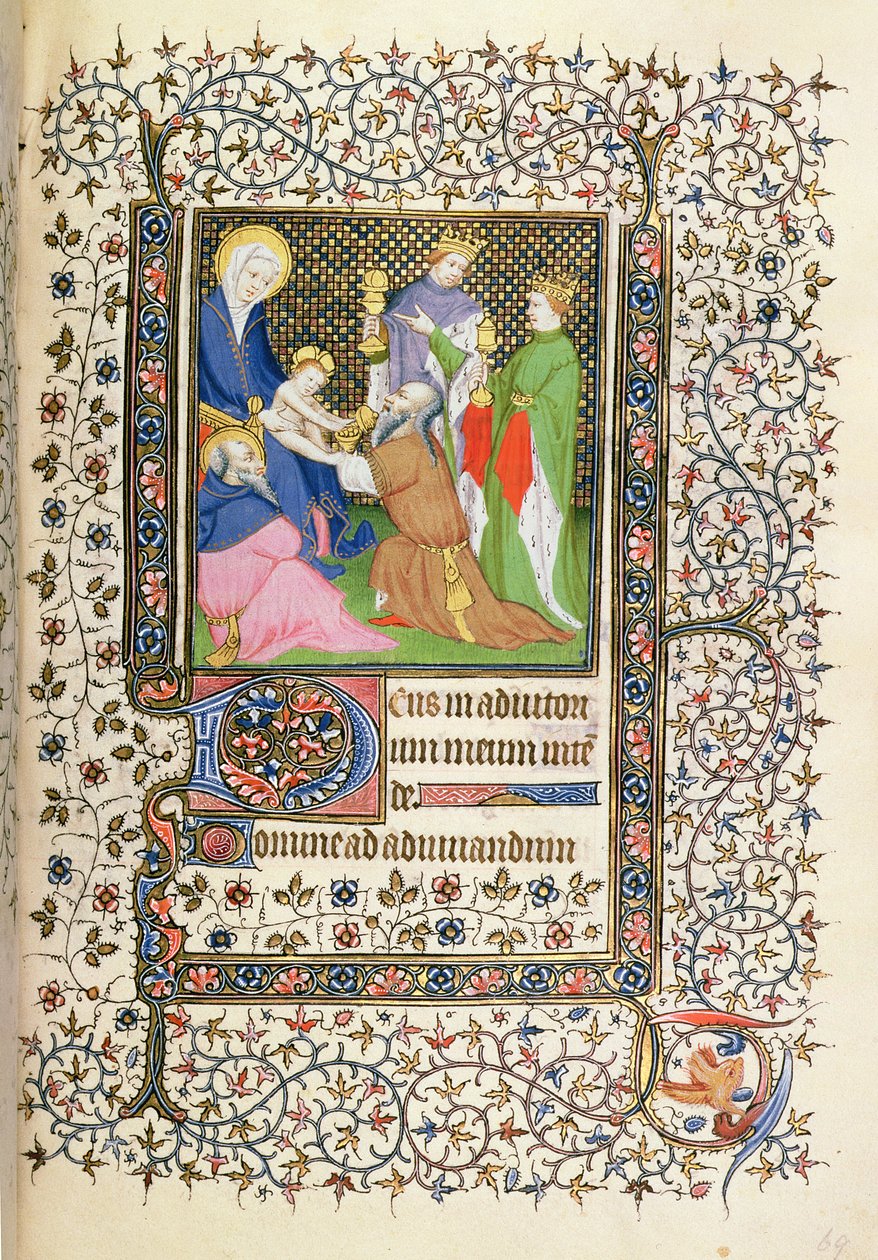 Deus in adiutori
um meum intē
de.
Domine ad adiuuandum
69